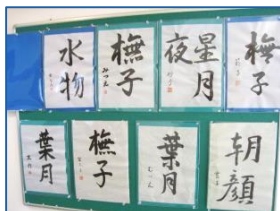 水物
撫子
星月
夜
撫子
葉月
撫子
葉月
朝顔